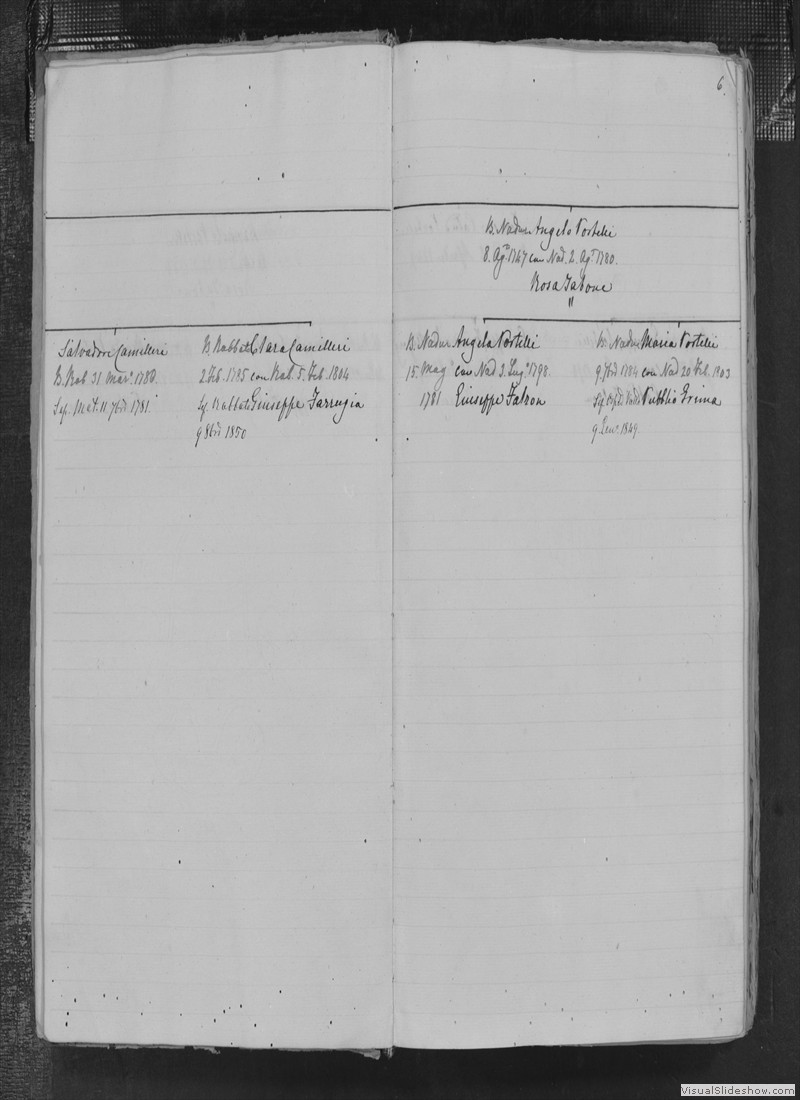 6.
B. Nadur Angelo Portelli
8. Ag.º 1747 con Nad. 2. Ag.º 1780.
Rosa Tabone
"
Salvadore Camilleri
B. Rab. 31 Mar.º 1780.
Sep. Mat. 11. 7bre 1781.
B. Rabbato Clara Camilleri
2 Feb. 1785 con Rab. 5. Feb. 1804
Sep. Rabbato Giuseppe Farrugia
9 8bre 1850
B. Nadur Angela Portelli
15. Mag.º con Nad 2. Lug.º 1798.
1781 Giuseppe Falzon
B. Nadur Maria Portelli
9. 7bre 1784 con Nad 20 Feb. 1803
Pubblio Grima
9. Gen.º 1849.
VisualSlideshow.com